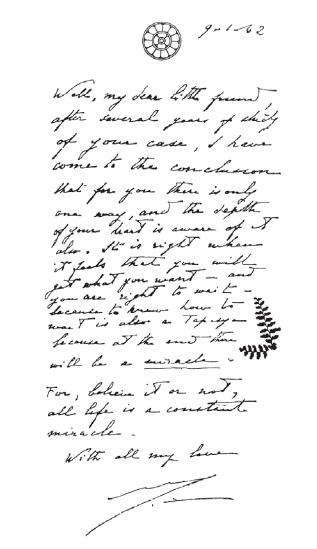 9-1-62
Well, my dear little friend,
after several years of study
of your case, I have
come to the conclusion
that for you there is only
one way, and the depth
of your heart is aware of it
also. It is right when
it feels that you will
get what you want – and
you are right to wait –
because to know how to
wait is also a Tapasya
because at the end there
will be a miracle.
For, believe it or not,
all life is a constant
miracle.
With all my love